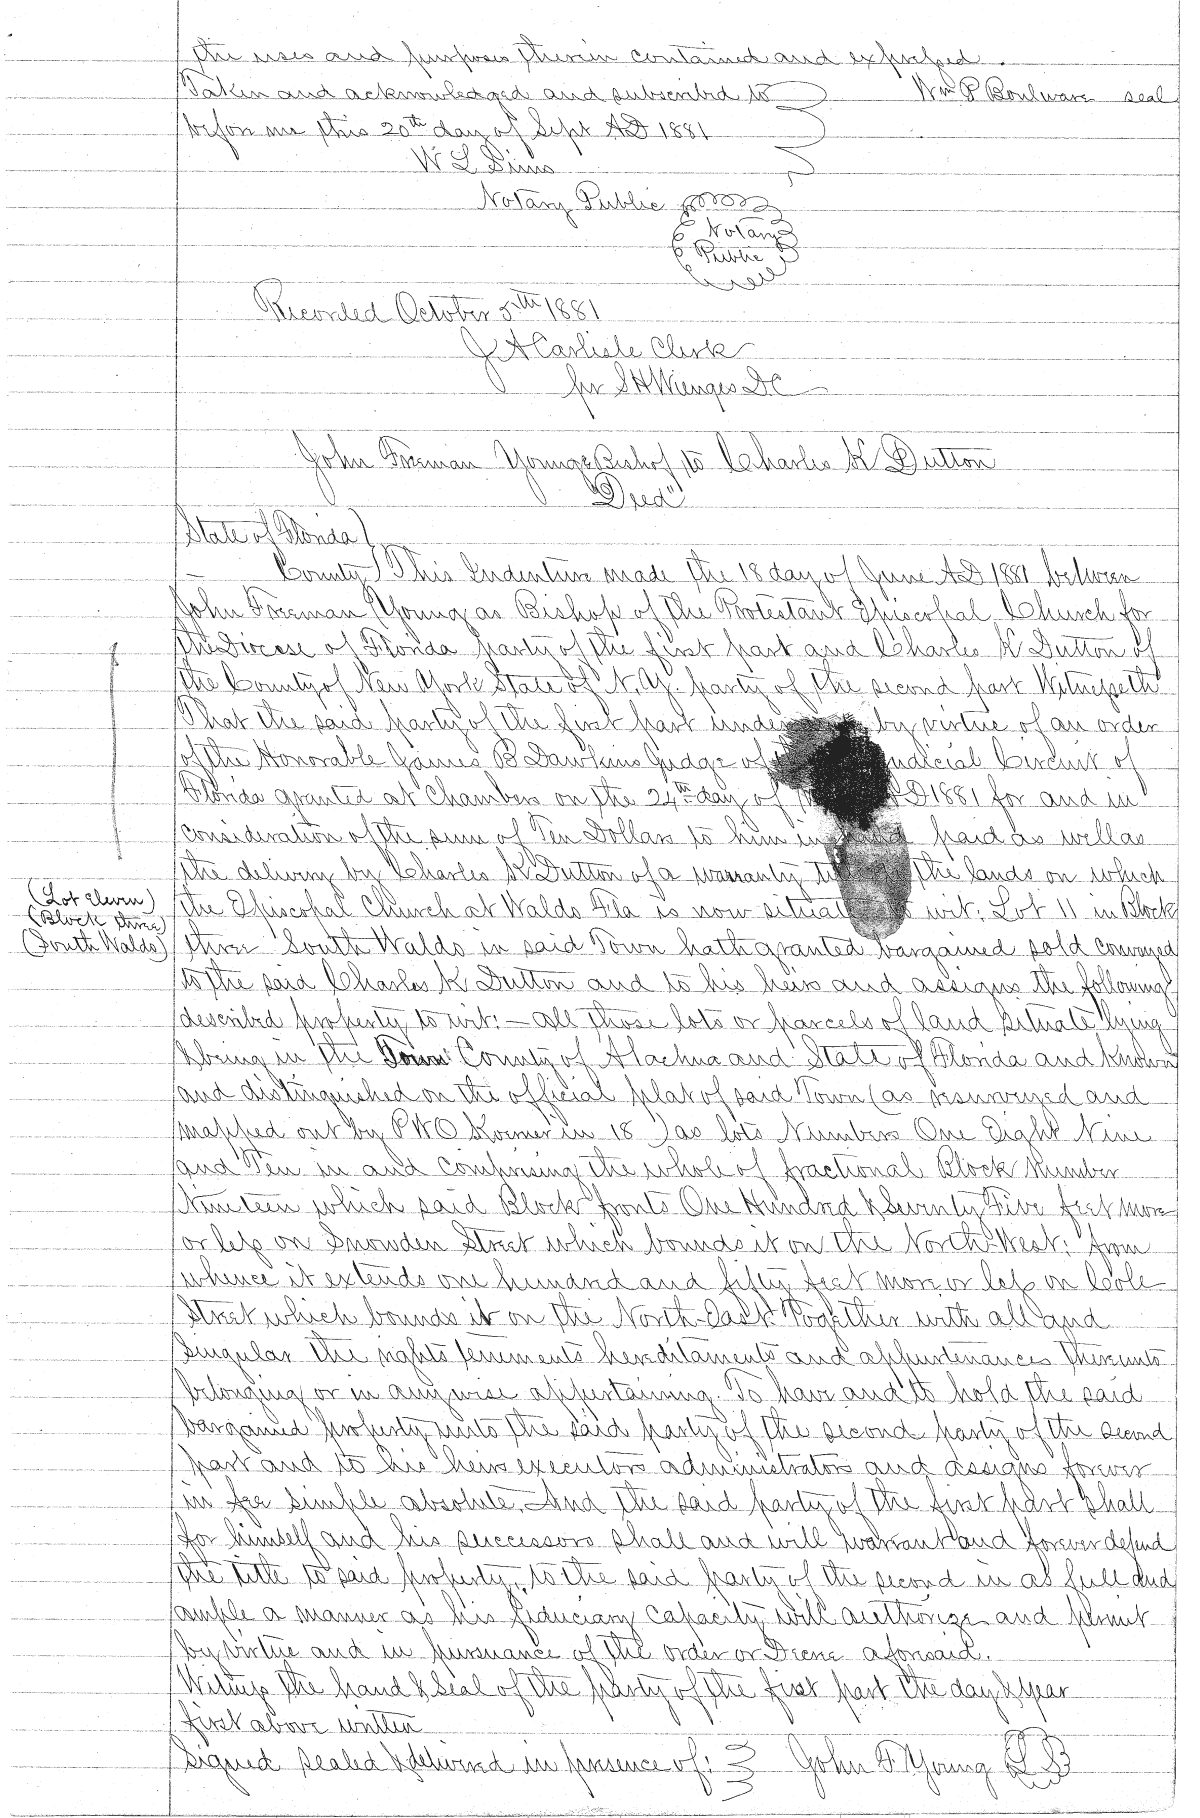 the uses and purposes therein contained and expressed.
Taken and acknowledged and subscribed to Wm P Boulware seal
before me this 20th day of Sept AD 1881
W L Sims
Notary Public
Notary
Public
Recorded October 5th 1881
J A Carlisle Clerk
per S H Wienges D C
John Freeman Young Bishop to Charles K Dutton
"Deed"
State of Florida)
County) This Indenture made the 18 day of June AD 1881 between
John Freeman Young as Bishop of the Protestant Episcopal Church for
the Diocese of Florida party of the first part and Charles K Dutton of
the County of New York State of N.Y. party of the second part Witnesseth
That the said party of the first part by virtue of an order
of the Honorable James B Dawkins Judge of Judicial Circuit of
Florida granted at Chambers on the 24th day of D 1881 for and in
consideration of the sum of Ten Dollars to him in hand paid as well as
the delivery by Charles K Dutton of a warranty the lands on which
(Lot Eleven)
(Block three)
(South Waldo)
the Episcopal Church at Waldo Fla is now wit; Lot 11 in Block
three South Waldo in said Town hath granted bargained sold conveyed
to the said Charles K Dutton and to his heirs and assigns the following
described property to wit:— All those lots or parcels of land situate lying
& being in the Town County of Alachua and State of Florida and known
and distinguished on the official plat of said Town (as resurveyed and
mapped out by P W O Koerner in 18 ) as lots Numbers One Eight Nine
and Ten in and comprising the whole of fractional Block Number
Nineteen which said Block fronts One Hundred & Seventy Five feet more
or less on Snowden Street which bounds it on the North-West; from
whence it extends one hundred and fifty feet more or less on Cole
Street which bounds it on the North-East Together with all and
Singular the rights tenements hereditaments and appurtenances thereunto
belonging or in any wise appertaining. To have and to hold the said
bargained property unto the said party of the second party of the second
part and to his heirs executors administrators and assigns forever
in fee simple absolute. And the said party of the first part shall
for himself and his successors shall and will warrant and forever defend
the title to said property, to the said party of the second in as full and
ample a manner as his fiduciary capacity will authorize and permit
by virtue and in pursuance of the order or Decree aforesaid.
Witness the hand & seal of the party of the first part the day & year
first above written
Signed sealed & delivered in presence of: John F Young L S